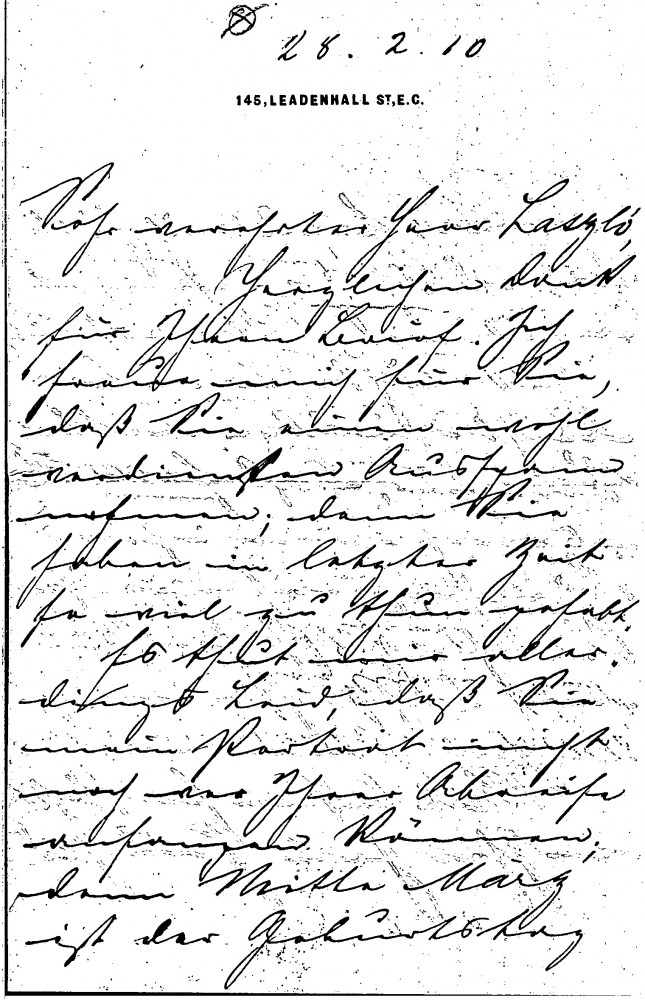 28. 2. 10
145, LEADENHALL ST, E.C.
Sehr verehrter Herr László,
Herzlichen Dank
für Ihren Brief. Ich
freue mich für Sie,
daß Sie einen wohl
verdienten Ausspann
nehmen; denn Sie
haben in letzter Zeit
so viel zu thun gehabt.
Es thut mir aller-
dings Leid, daß Sie
mein Portrait nicht
noch vor Ihrer Abreise
anfangen können;
denn Mitte März
ist der Geburtstag